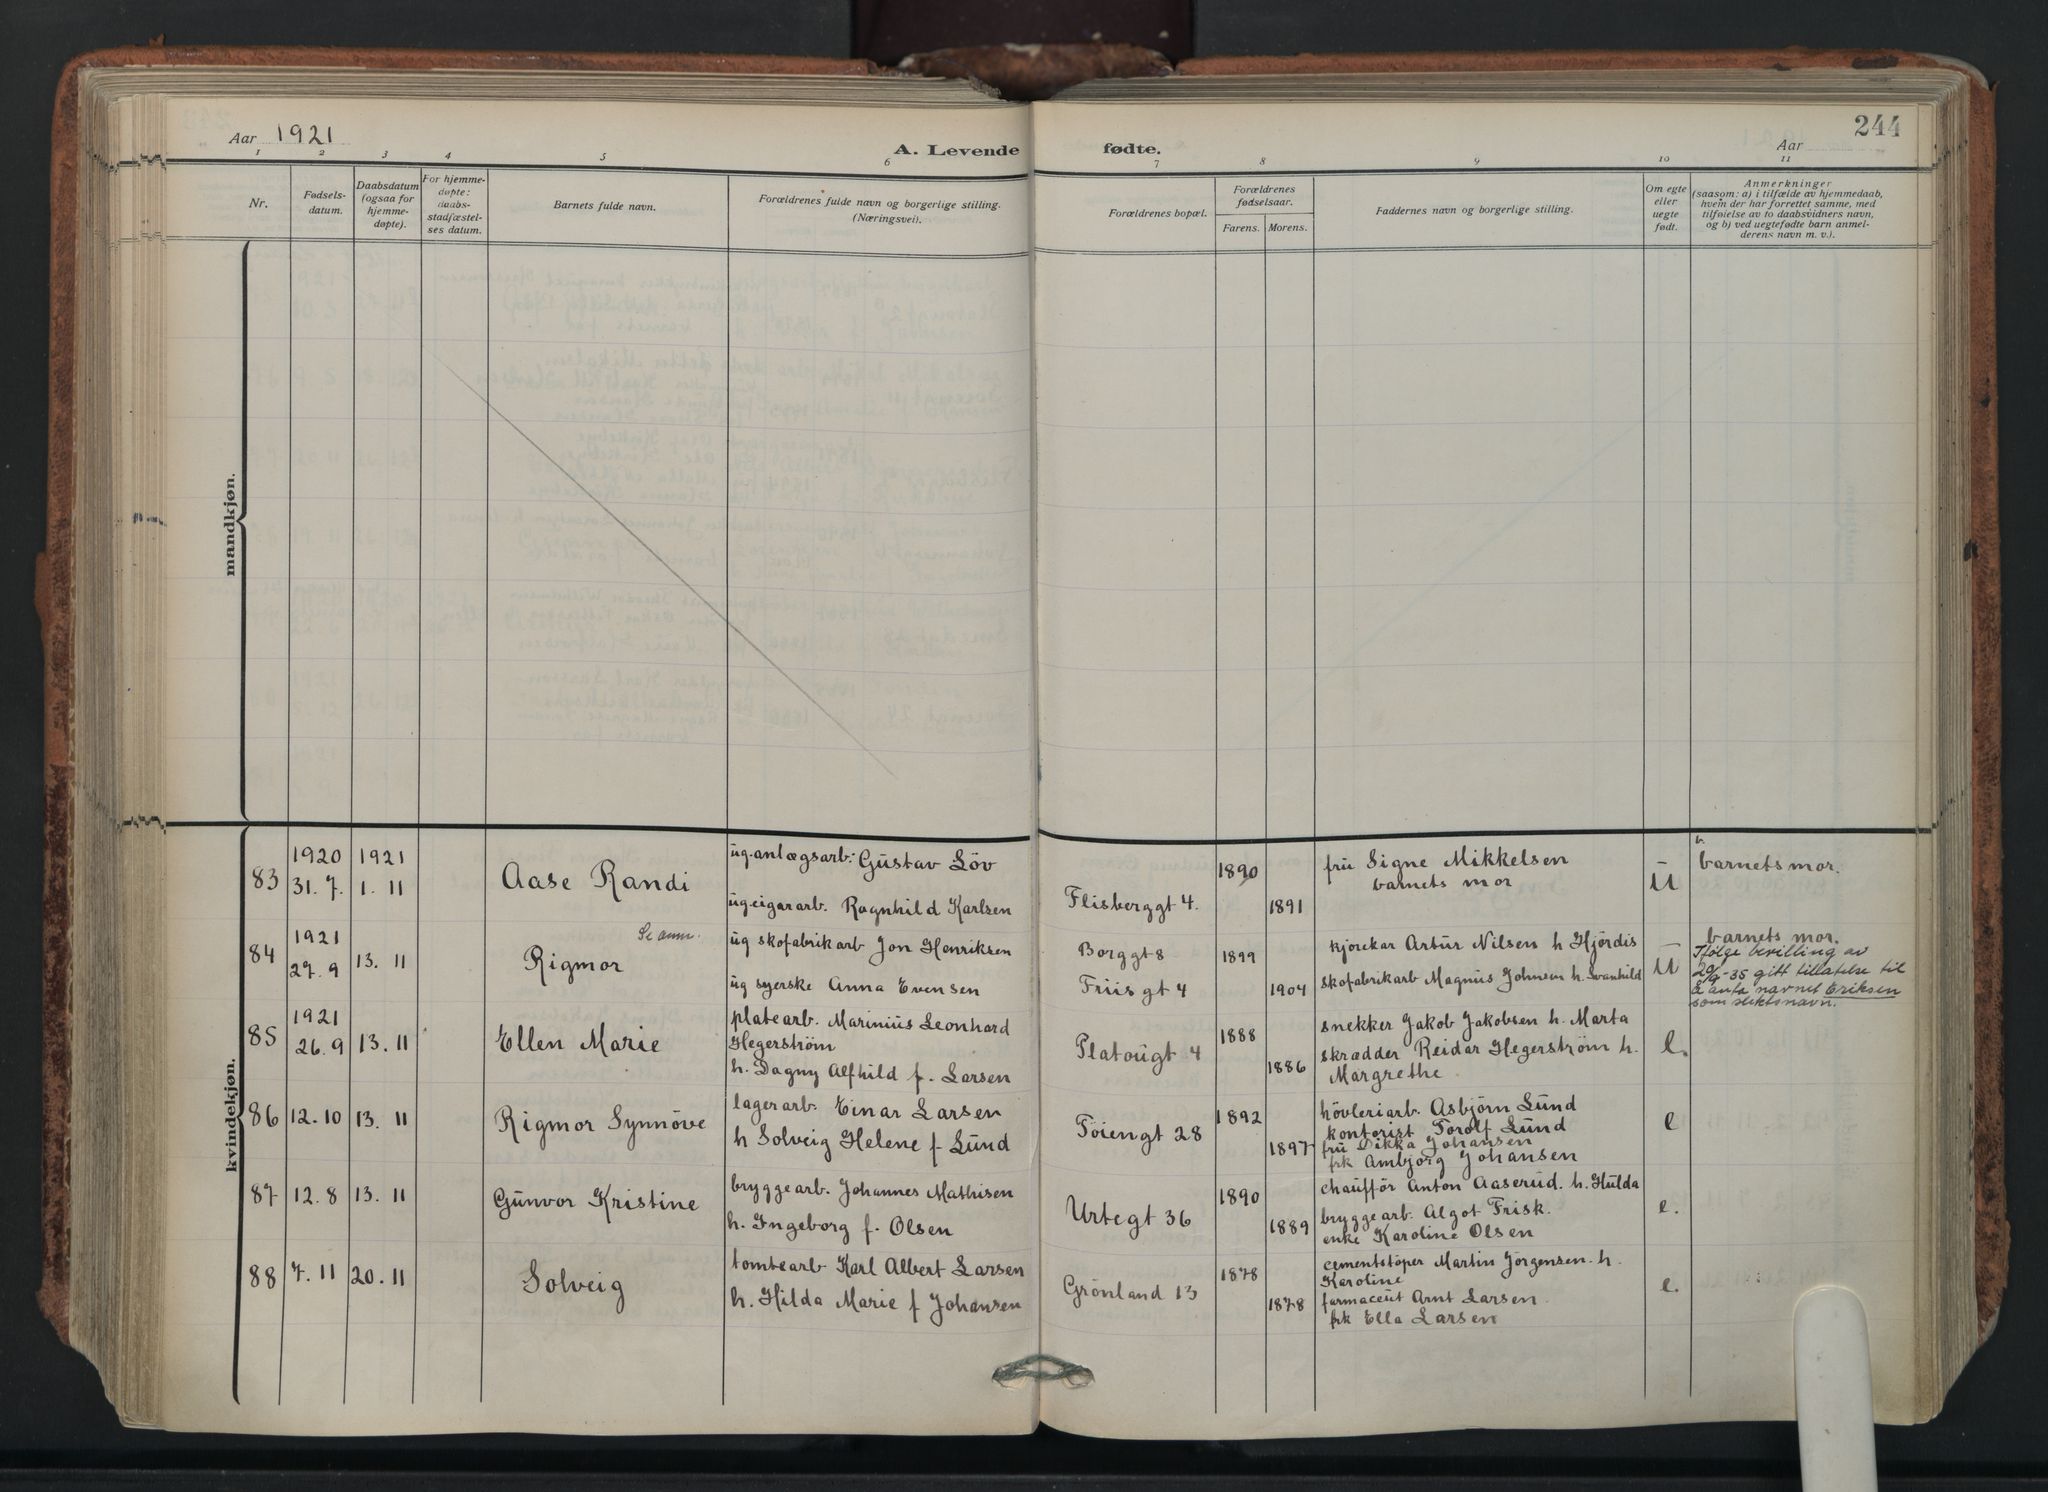 244
Aar 1921
A. Levende fødte.
Aar
1 2 3 4 5 6 7 8 9 10 11
Nr.
Fødsels-
datum.
Daabsdatum
(ogsaa for
hjemme-
døpte).
For hjemme-
døpte:
daabs-
stadfæstel-
ses datum.
Barnets fulde navn.
Forældrenes fulde navn og borgerlige stilling.
(Næringsvei).
Forældrenes bopæl.
Forældrenes
fødselsaar.
Farens. Morens.
Faddernes navn og borgerlige stilling.
Om egte
eller
uegte
født.
Anmerkninger
(saasom: a) i tilfælde av hjemmedaab,
hvem der har forrettet samme, med
tilføielse av to daabsvidners navn,
og b) ved uegtefødte barn anmel-
derens navn m. v.).
mandkjøn.
kvindekjøn.
83
1920
31. 7.
1921
1. 11
Aase Randi
ug. anlægsarb: Gustav Löv
ug. cigararb. Ragnhild Karlsen
Flisberggt 4.
1890
1891
fru Signe Mikkelsen
barnets mor
U
b.
barnets mor.
84
1921
27. 9
13. 11
Se anm.
Rigmor
ug skofabrikarb Jon Henriksen
ug syerske Anna Evensen
Borggt 8
Friis gt 4
1899
1904
kjörekar Artur Nilsen h Hjördis
skofabrikarb Magnus Johnsen h. Svanhild
U
barnets mor.
Ifølge bevilling av
20/9-35 gitt tillatelse til
å anta navnet Eriksen
som slektsnavn.
85
1921
26. 9
13. 11
Ellen Marie
platearb. Marinius Leonhard
Hegerström
h. Dagny Alfhild f. Larsen
Platougt 4
1888
1886
snekker Jakob Jakobsen h. Marta
skrædder Reidar Hegerström h.
Margrethe
e.
86
12. 10
13. 11
Rigmor Synnöve
lagerarb. Einar Larsen
h Solveig Helene f Lund
Töiengt 28
1892
1897
hövleriarb. Asbjörn Lund
kontorist Torolf Lund
fru Dikka Johansen
frk Ambjörg Johansen
e
87
12. 8
13. 11
Gunvor Kristine
bryggearb. Johannes Mathisen
h. Ingeborg f. Olsen
Urtegt 36
1890
1889
chaufför Anton Aaserud. h. Hulda
bryggearb. Algot Frisk.
enke Karoline Olsen
e.
88
7. 11
20. 11
Solveig
tomtearb Karl Albert Larsen
h. Hilda Marie f Johansen
Grönland 13
1878
1878
cementstöper Martin Jörgensen. h.
Karoline
farmaceut Arnt Larsen.
frk Ella Larsen
e.